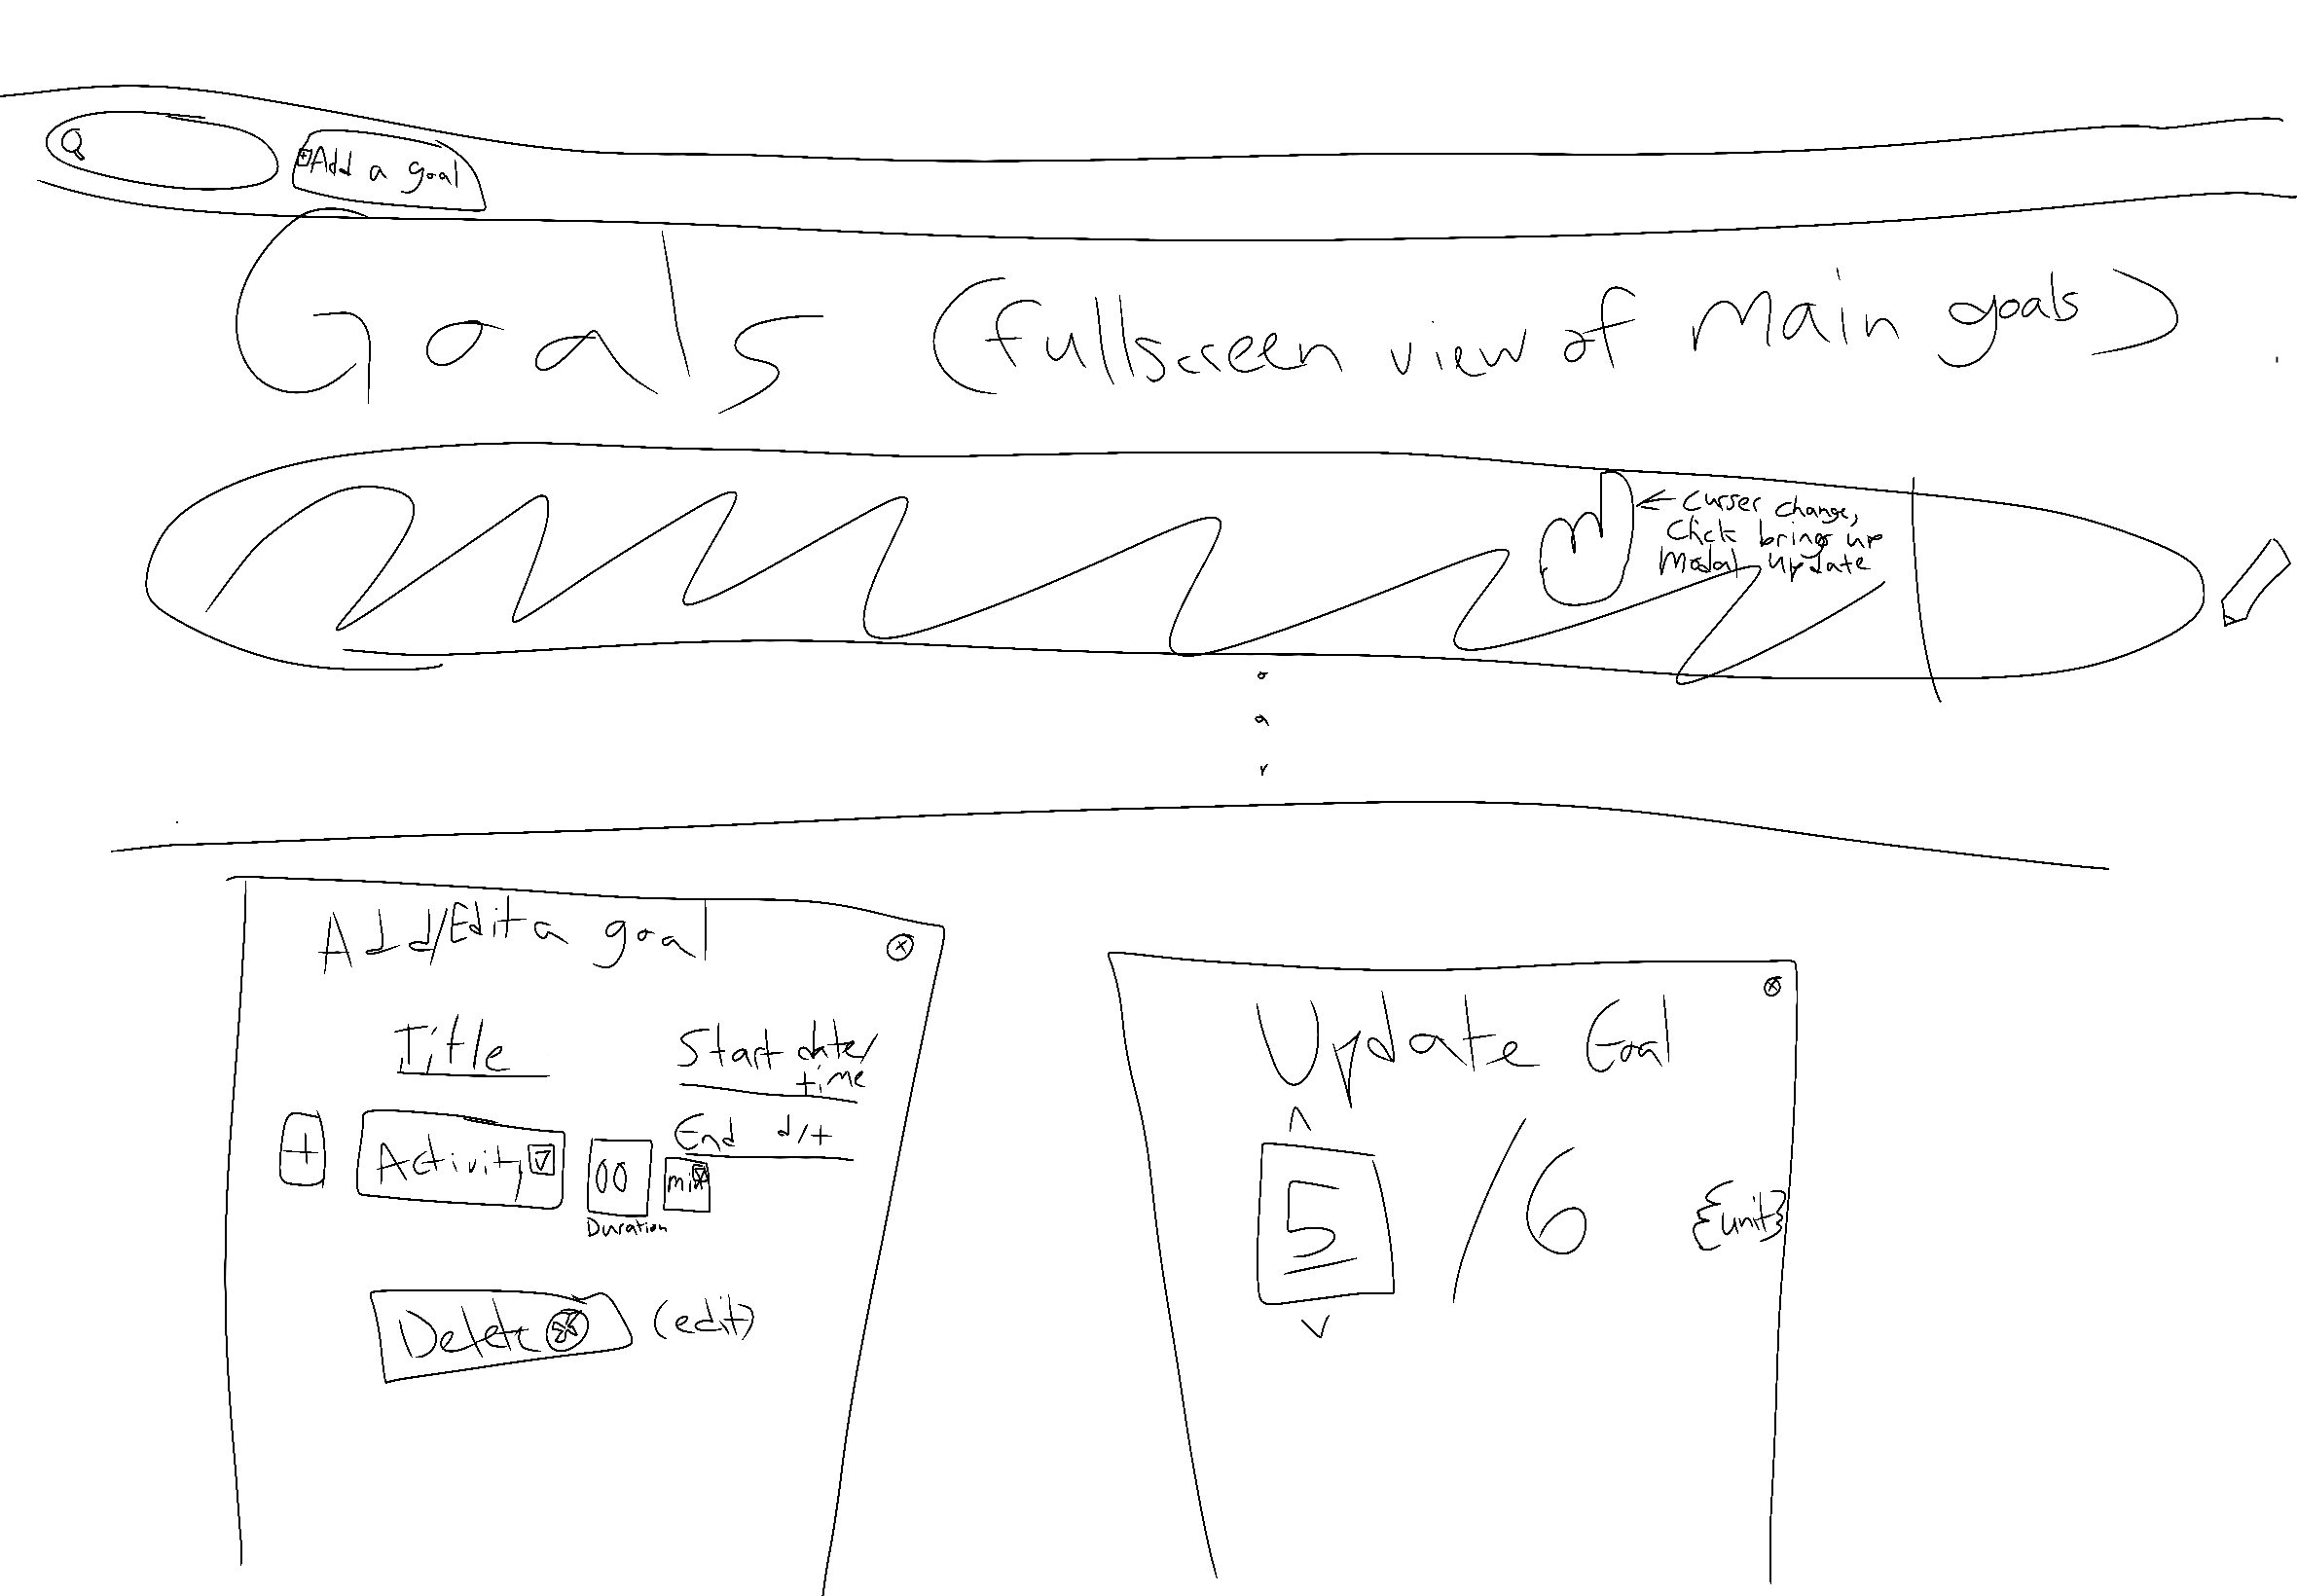 Add a goal
Goals (fullscreen view of Main goals)
← Curser change,
Click brings up
Modal update
Add/Edit a goal
Title
Start date/
time
End d/t
+
Activity
00
min
Duration
Delete
(edit)
Update Goal
5 / 6
{unit}